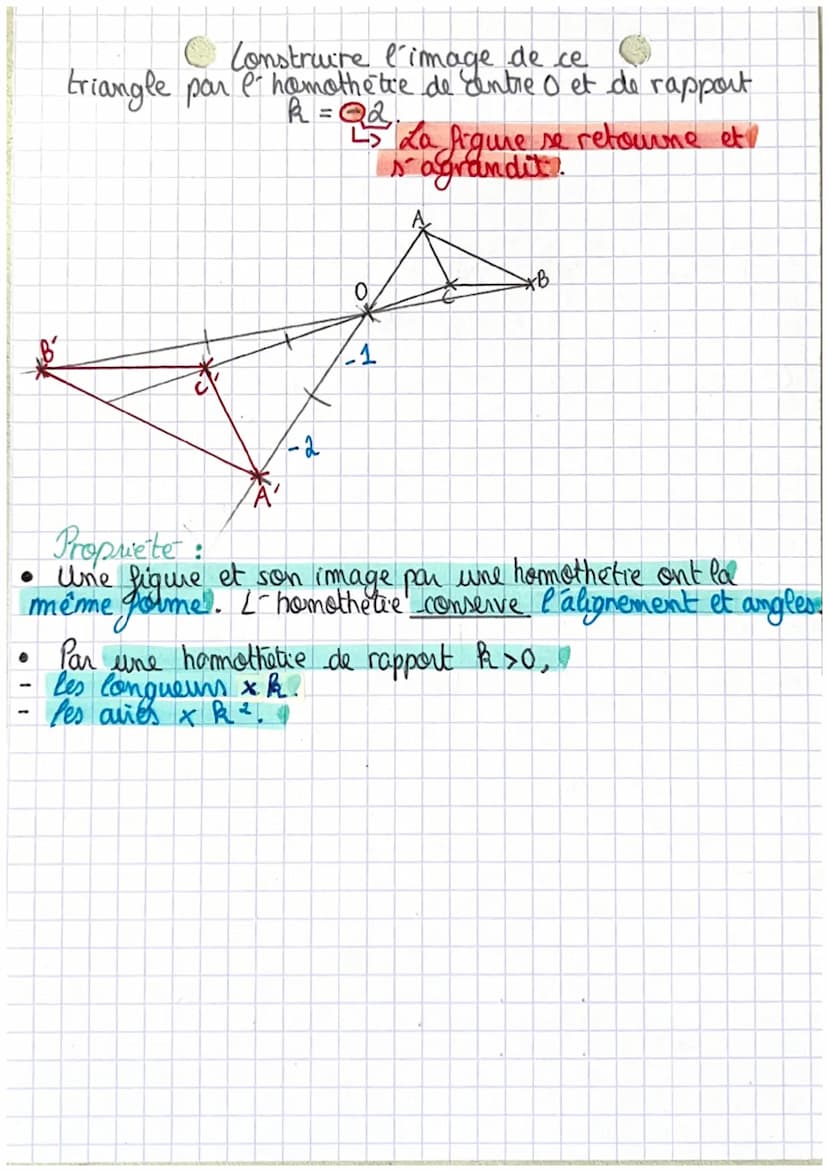 Construire l'image de ce
triangle par l'homothétie de centre O et de rapport
k = -2.
↳ La figure se retourne et
s'agrandit.
A
O
B
C
-1
B'
C'
-2
A'
Propriété :
• Une figure et son image par une homothétie ont la
même forme. L'homothétie conserve l'alignement et angles.
• Par une homothétie de rapport k > 0,
- les longueurs x k.
- les aires x k².